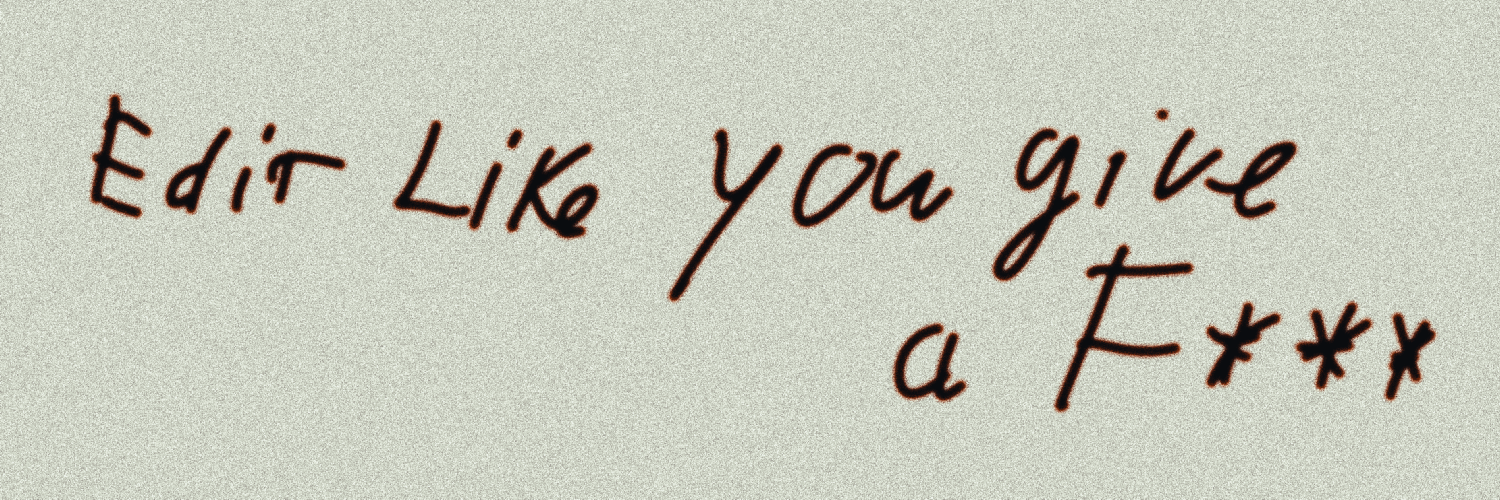 Edit Like you give
a F***